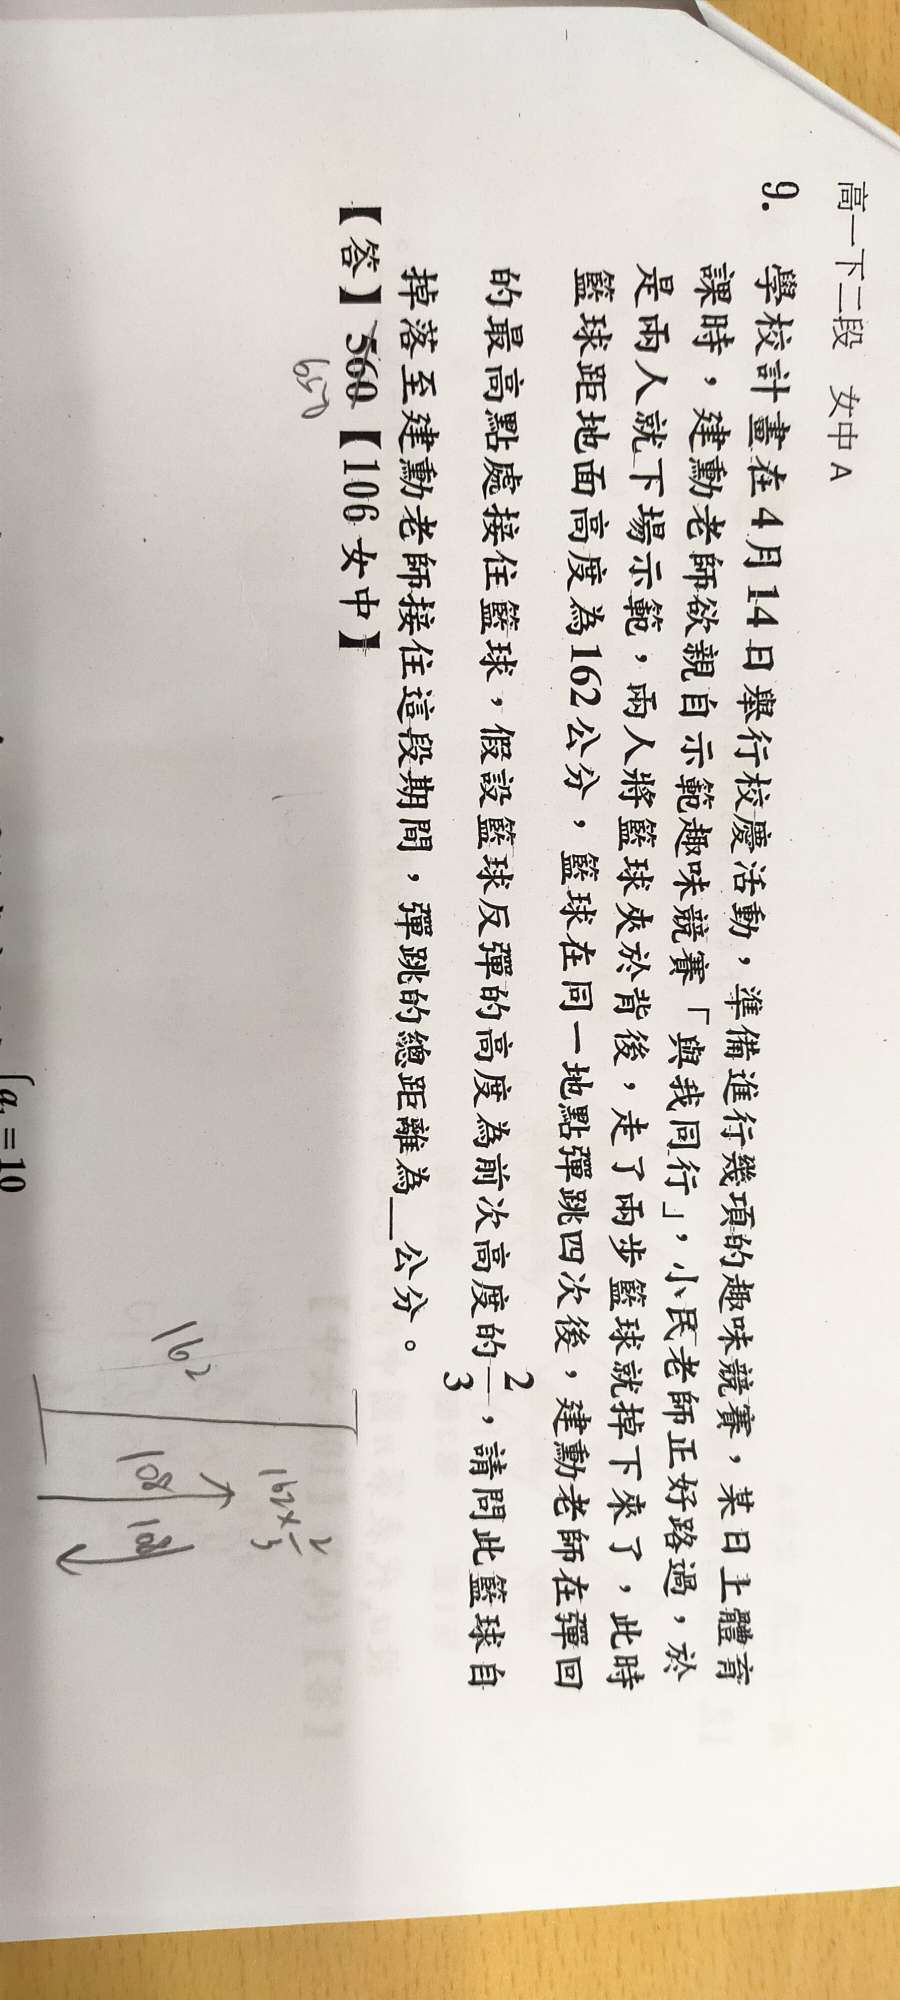 高一下二段 女中A
9. 學校計畫在4月14日舉行校慶活動，準備進行幾項的趣味競賽，某日上體育
課時，建勳老師欲親自示範趣味競賽「與我同行」，小民老師正好路過，於
是兩人就下場示範，兩人將籃球夾於背後，走了兩步籃球就掉下來了，此時
籃球距地面高度為162公分，籃球在同一地點彈跳四次後，建勳老師在彈回
的最高點處接住籃球，假設籃球反彈的高度為前次高度的2/3，請問此籃球自
掉落至建勳老師接住這段期間，彈跳的總距離為__公分。
【答】560【106女中】
650
162×2/3
162
108
108
a₁=10